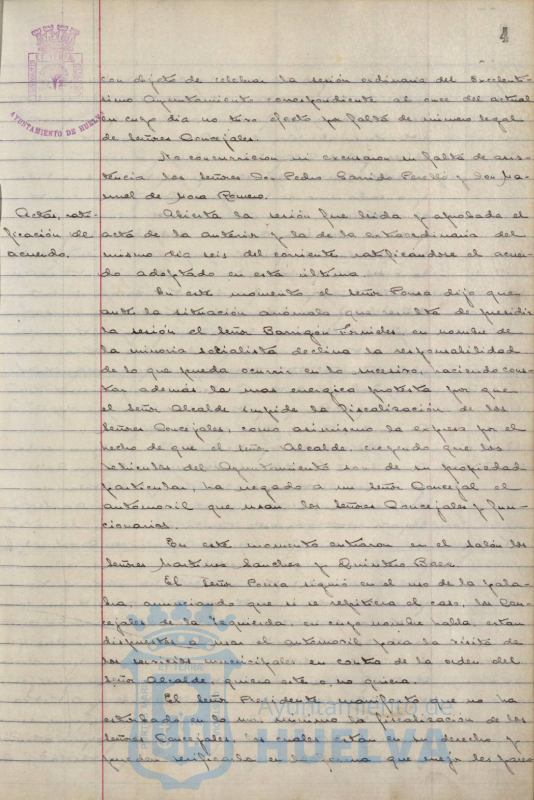 4
AYUNTAMIENTO DE HUELVA
con objeto de celebrar la sesión ordinaria del Excelentí-
simo Ayuntamiento correspondiente al once del actual
en cuyo día no tuvo efecto por falta de número legal
de Señores Concejales.
No concurrieron ni excusaron su falta de asis-
tencia los Señores Don Pedro Garrido Perelló y Don Ma-
nuel de Mora Romero.
Actas, rati-
ficación de
acuerdo.
Abierta la sesión fue leida y aprobada el
acta de la anterior y la de la extraordinaria del
mismo día seis del corriente, ratificandose el acuer-
do adoptado en esta última.
En este momento el Señor Ponsa dijo que
ante la situación anómala que resulta de presidir
la sesión el Señor Barrigón en nombre de
la minoria socialista declina la responsabilidad
de lo que pueda ocurrir en lo sucesivo, haciendo cons-
tar además la mas energica protesta por que
el Señor Alcalde impide la fiscalización de los
Señores Concejales, como asimismo la expresa por el
hecho de que el señor Alcalde, creyendo que los
vehículos del Ayuntamiento son de su propiedad
particular, ha negado a un Señor Concejal el
automóvil que usan los Señores Concejales y fun-
cionarios.
En este momento entraron en el salón los
Señores Martinez Sanchez y Quintero Baez.
El Señor Ponsa siguió en el uso de la pala-
bra anunciando que si se repitiera el caso, los Con-
cejales de la Izquierda, en cuyo nombre habla, estan
dispuestos a usar el automovil para la visita de
los servicios municipales en contra de la orden del
Señor Alcalde, quiera este o no quiera.
El Señor Presidente manifestó que no ha
estorbado en lo mas minimo la fiscalización de los
Señores Concejales, los cuales están en su derecho y
pueden verificarla en la forma que mejor les pare
Ayuntamiento de
HUELVA